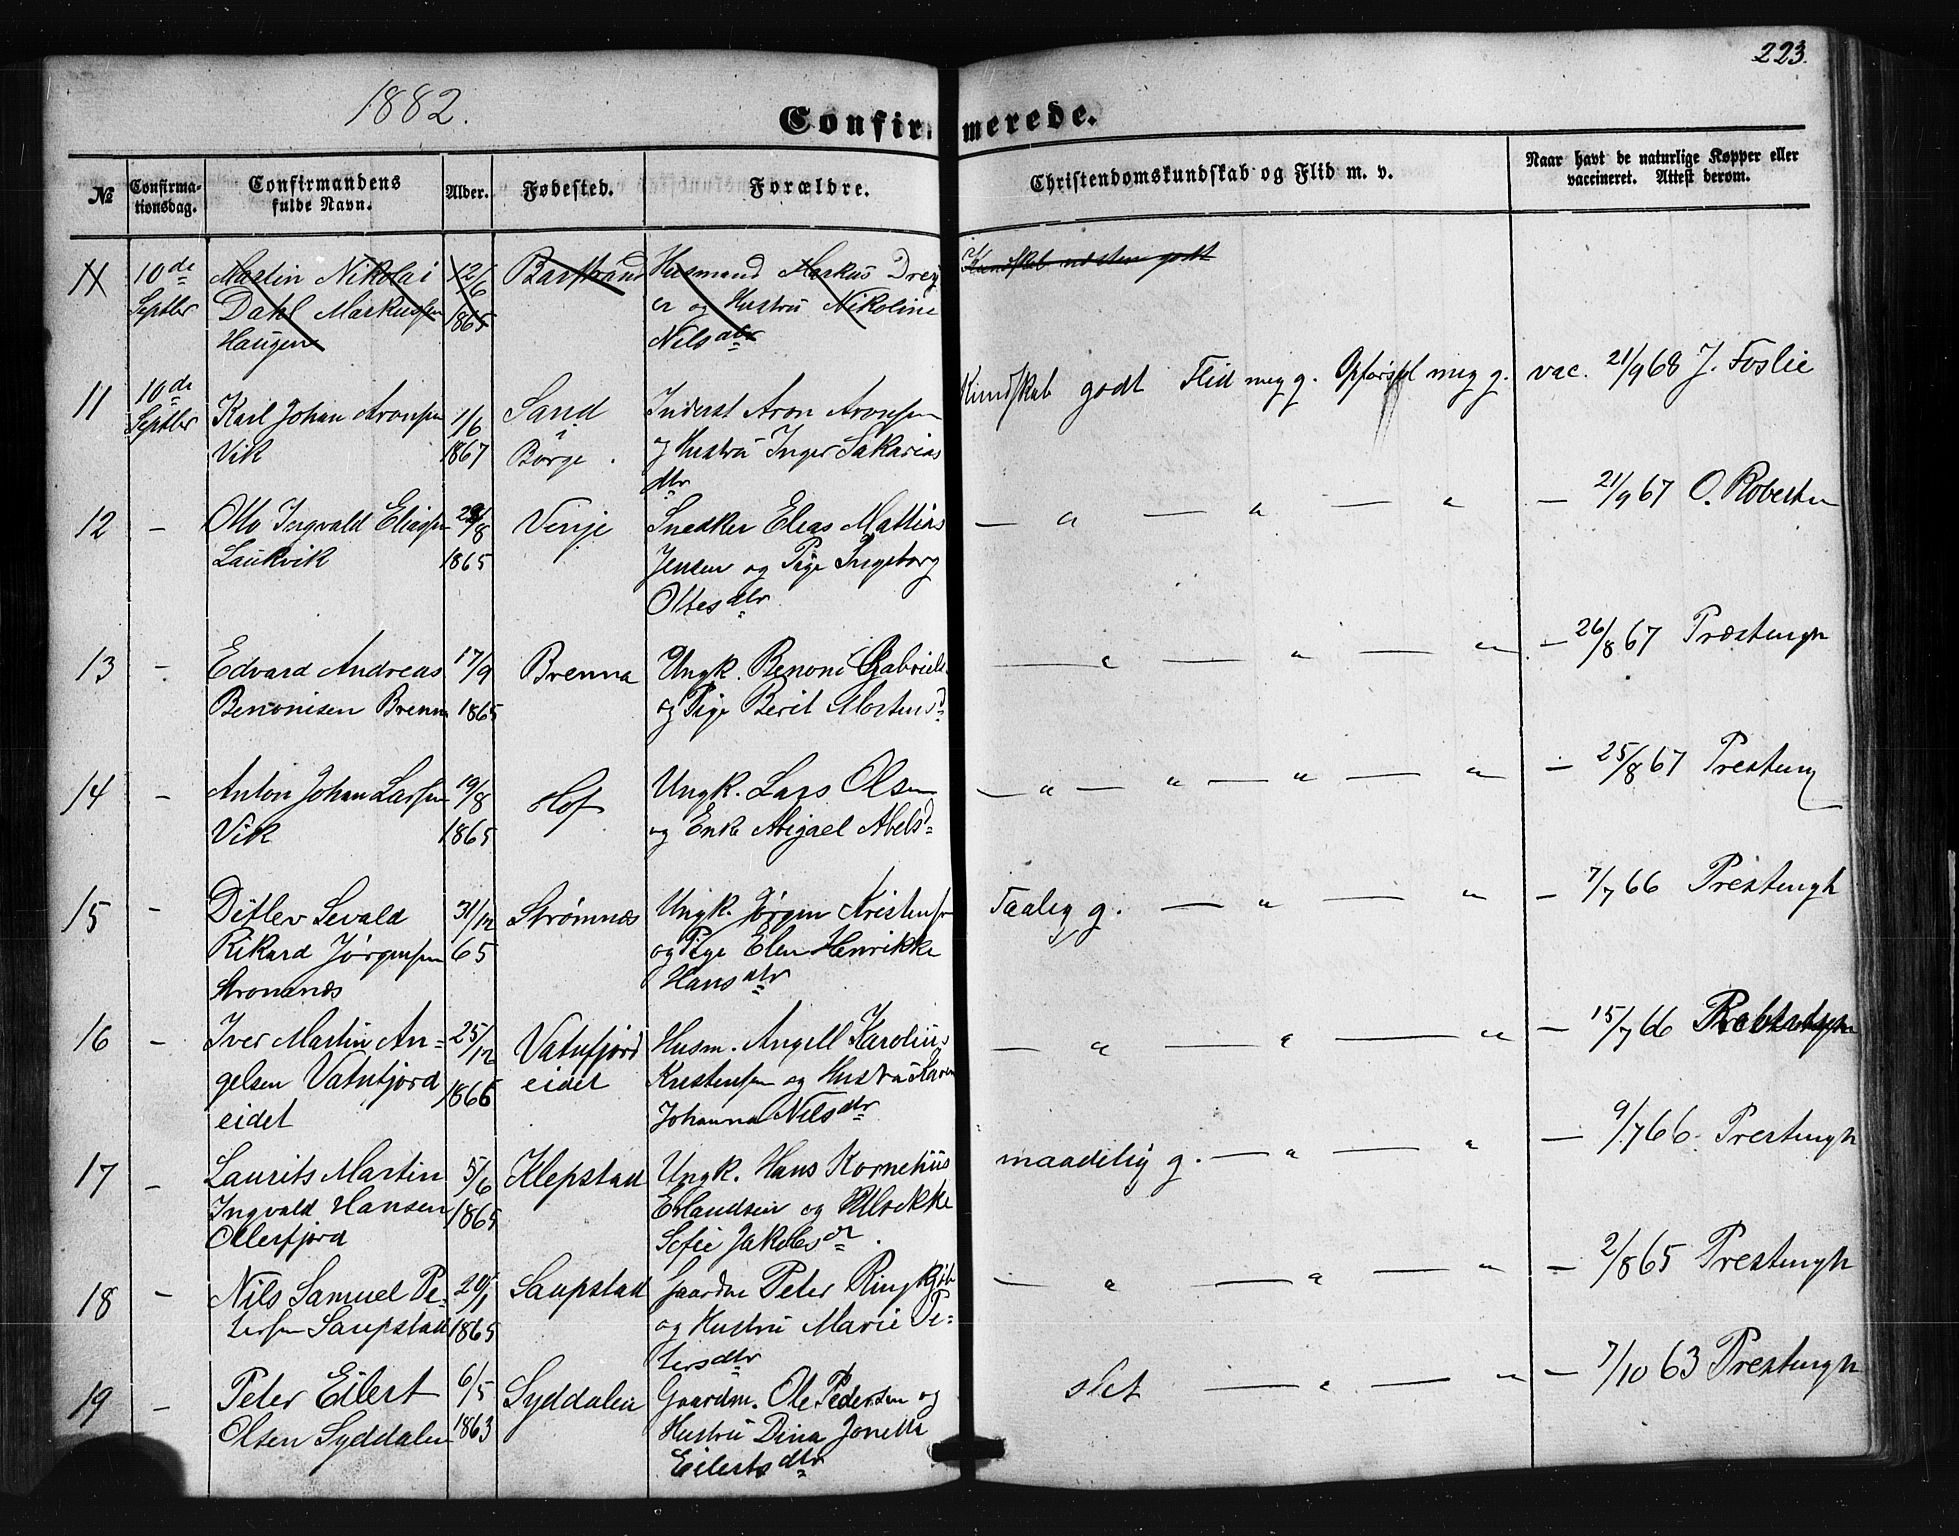 223.
1882.
Confirmerede.
№ Confirma-tionsdag. Confirmandens fulde Navn. Alder. Fødested. Forældre. Christendomskundskab og Flid m. v. Naar havt de naturlige Kopper eller vaccineret. Attest derom.
11 10de Martin Nikolai 12/6 Barstrand Husmand Markus Drey Kundskab næsten godt
Septbr Dahl Markussen 1865 er og Hustru Nikoline
Haugen Nilsdtr
11 10de Karl Johan Aronsen 1/6 Sand Inderst Aron Aronsen Kundskab godt Flid meg g. Opførsel meg g. vac. 21/9 68 J. Foslie
Septbr Vik 1867 i Borge. og Hustru Inger Sakarias
dtr
12 — Otto Ingvald Eliassen /8 Venje Snedker Elias Mattias — " — " — " — 21/9 67 O.
Laukvik 1865 Jensen og Pige Ingeborg
Ottesdtr
13 — Edvard Andreas 17/9 Brenna Ungk. Benoni Gabriels — " — " — " — 26/8 67 Præstengh
Benonisen Brenna 1865 og Pige Berit Mortensd
14 — Anton Johan Larsen 19/8 Hof Ungk. Lars Olsen — " — " — " — " — 25/8 67 Presteng
Vik 1865 og Enke Abigael Abelsd
15 — Ditlev Sevald 31/12 Strømnæs Ungk. Jørgen Kristensen Taaleg g. — " — " — 7/7 66 Prestengh
Rikard Jørgensen 65 og Pige Elen Henrikke
Strømnæs Hansdtr
16 — Iver Martin An= 25/12 Vatnfjord Husm. Angell Karolius — " — " — " — 15/7 66
gelsen Vatnfjord 1865 eidet Kristensen og Hustru Karen
eidet Johanna Nilsdtr
17 — Laurits Martin 5/6 Klepstad Ungk. Hans Kornelius maadelig g. — " — " — 9/7 66 Prestengh
Ingvald Hansen 1865 Erlandsen og Ulrikke
Ollersfjord Sofie Jakobsdr.
18 — Nils Samuel Pe= /1 Saupstad Gaardm Peter Ringkjøb — " — " — " — 2/8 65 Prestengh
tersen Saupstad 1865 og Hustru Marie Pe=
tersdtr
19 — Peter Eilert 6/5 Syddalen Gaardm. Ole Pedersen og slet — " — " — 7/10 63 Prestengh
Olsen Syddalen 1863 Hustru Dina Jonetta
Eilertsdtr